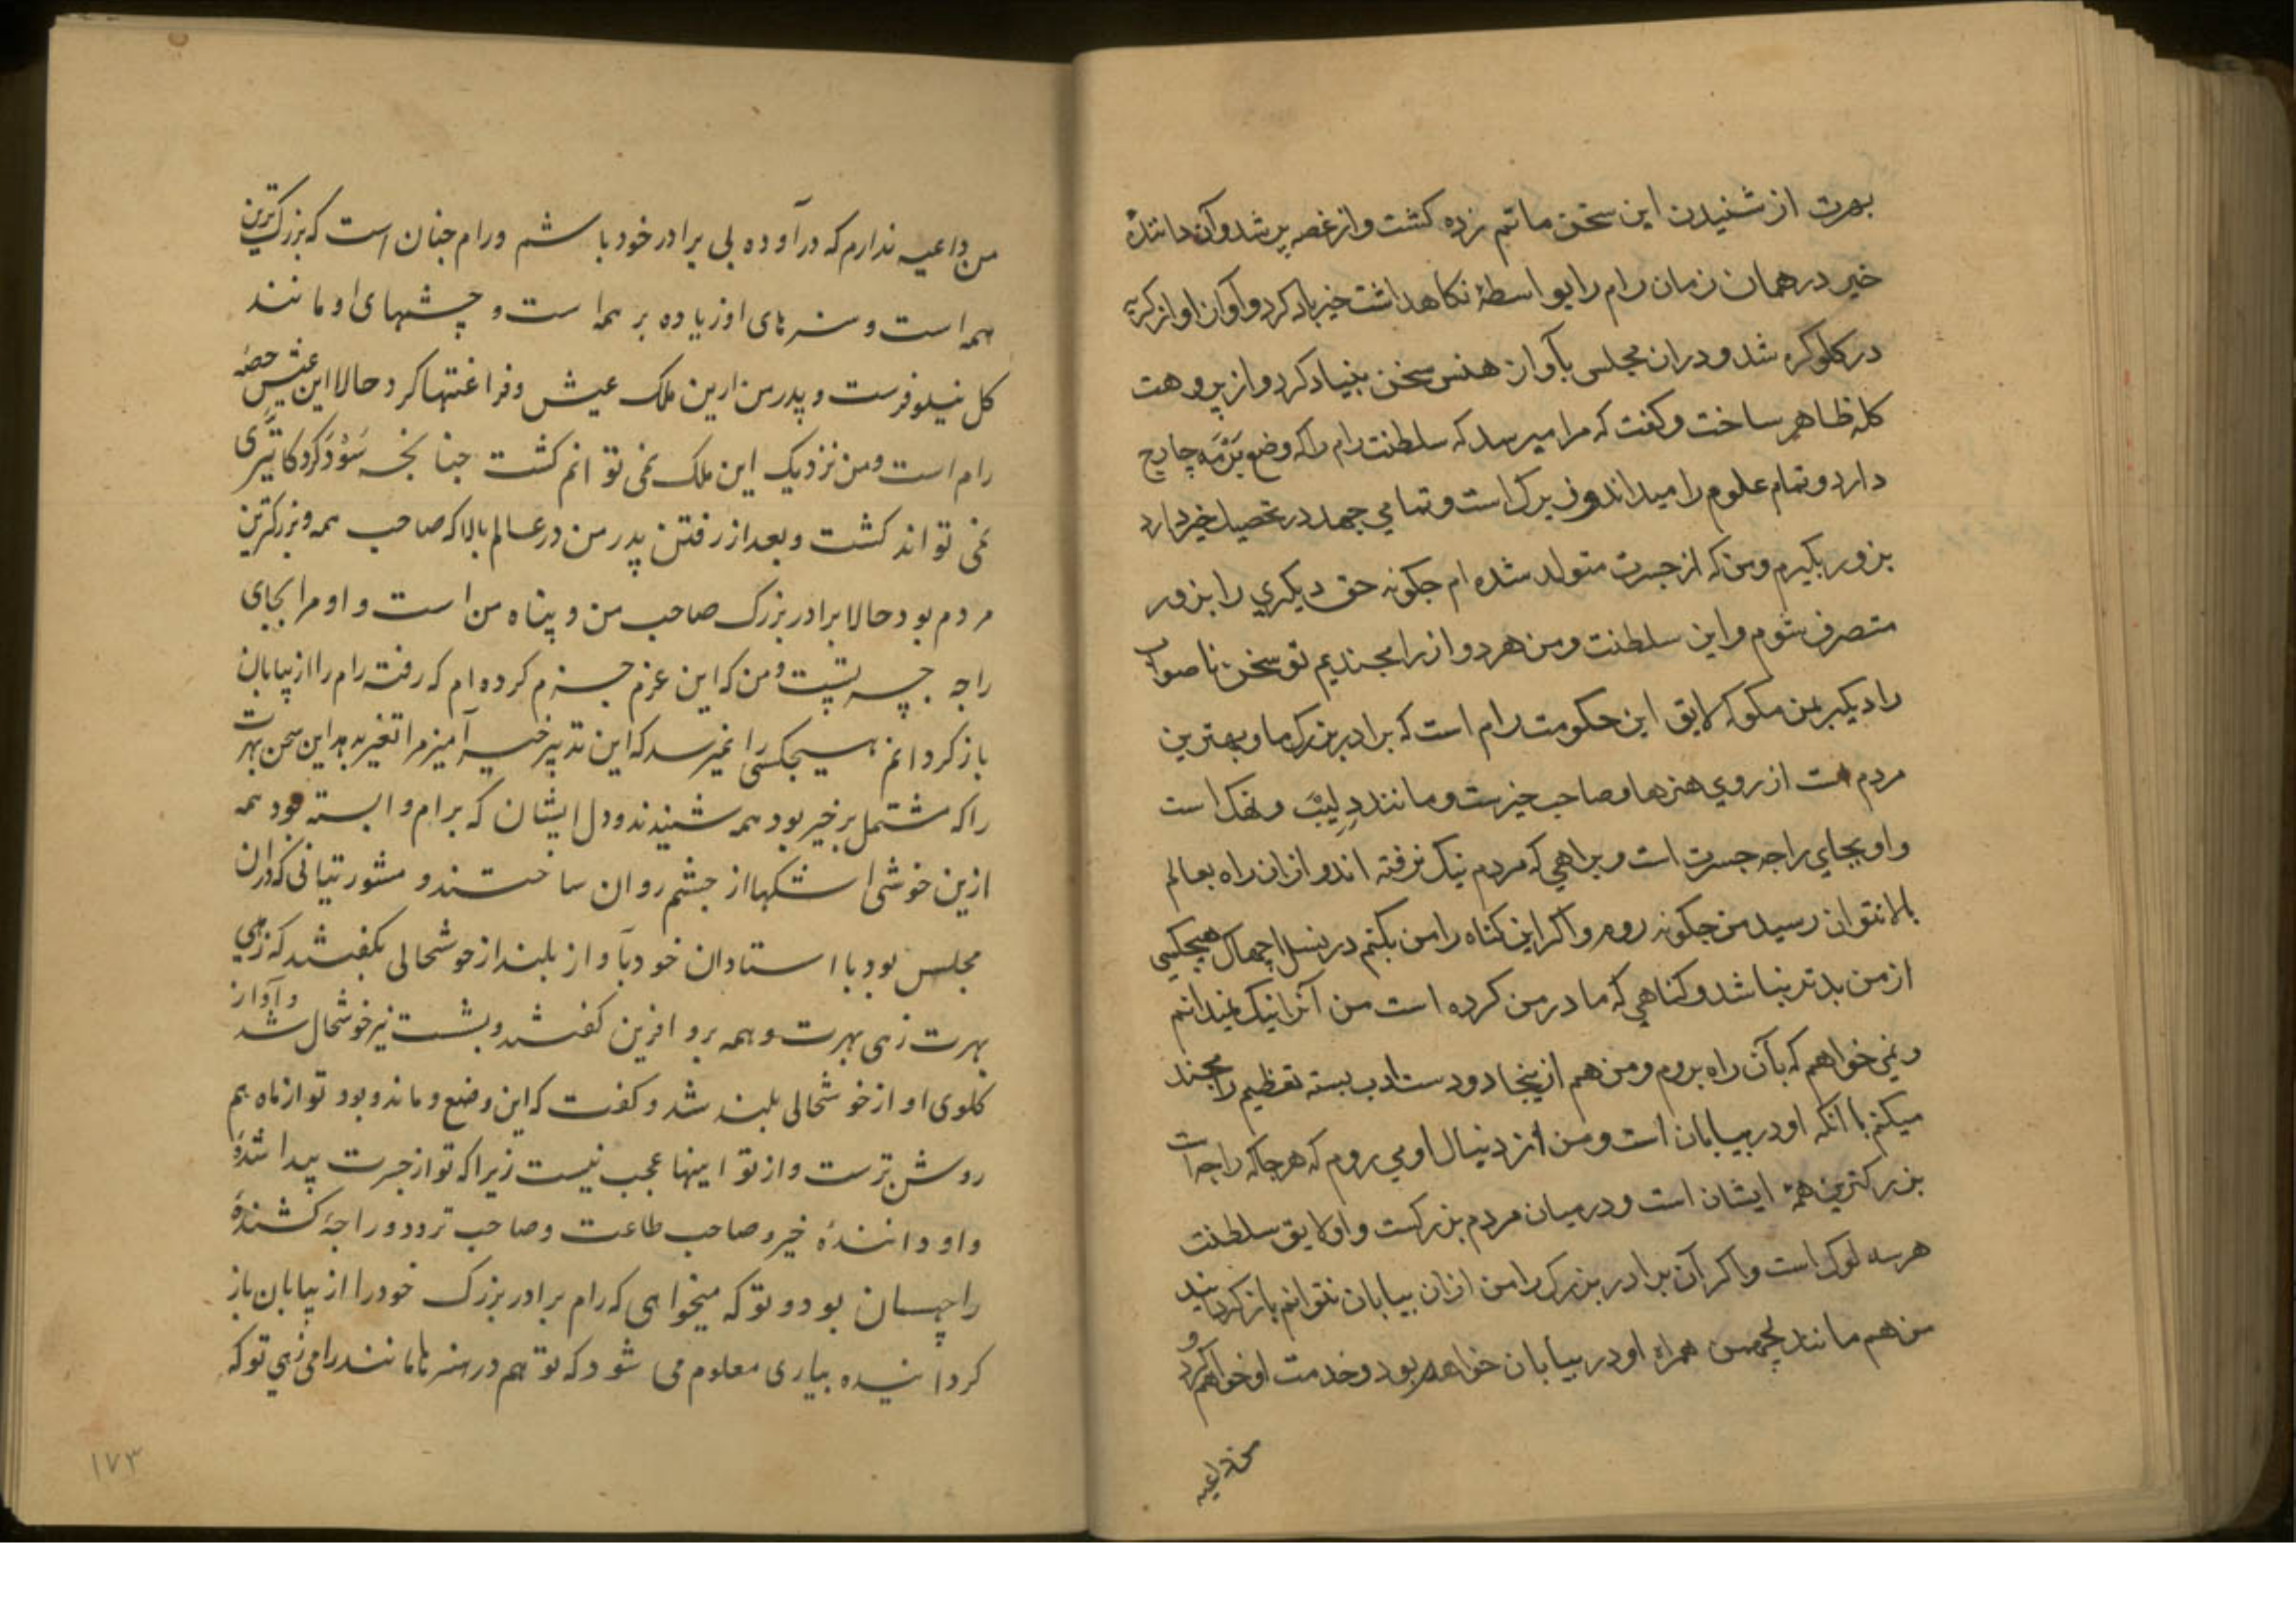 بهرت از شنیدن این سخن ماتم زده کشت و از غصه پر شد و آن دانندهٔ
خیر در همان زمان رام را بواسطهٔ نکاهداشت خیر یاد کرد و آواز او از کریه
در کلو کره شد و در ان مجلس بآواز هنس سخن بنیاد کرد و از پروهت
کله ظاهر ساخت و کفت که مرا میرسد که سلطنت رام را که وضع برمه چارج
دارد و تمام علوم را میداند و زیرک است و تمامی جهد در تحصیل خیر دارد
بزور بکیرم و من که از جسرت متولد شده ام چکونه حق دیکری را بزور
متصرف شوم و این سلطنت و من هر دو از رامچندیم تو سخن ناصواب
را دیکر بمن مکو که لایق این حکومت رام است که برادر بزرک ما و بهترین
مردم است از روی هنرها و صاحب خیرست و مانند دلیپ و نهک است
و او بجای راجه جسرت است و براهی که مردم نیک نرفته اند و از ان راه بعالم
بالا نتوان رسید من چکونه روم و اکر این کناه را من بکنم در نسل اچهاک هیچکسی
از من بدتر نباشد و کناهی که مادر من کرده است من آنرا نیک نمیدانم
و نمی خواهم که بآن راه بروم و من هم از ینجا دو دست ادب بسته تعظیم رامچند
میکنم با انکه او در بیابان است و من از دنبال او می روم که هر جا که راجه است
بزرکترین همهٔ ایشان است و در میان مردم بزرکست و او لایق سلطنت
هر سه لوک است و اکر آن برادر بزرک را من از ان بیابان نتوانم باز کردانید
من هم مانند لچهمن همراه او در بیابان خواهم بود و خدمت او خواهم کرد و
من داعیه
من داعیه ندارم که در آوده بی برادر خود باشم و رام چنان است که بزرک ترین
همه است و هنرهای او زیاده بر همه است و چشمهای او مانند
کل نیلوفرست و پدر من ازین ملک عیش و فراغتها کرد و حالا این عیش حصهٔ
رام است و من نزدیک این ملک نمی توانم کشت چنانچه سودر کرد کایتری
نمی تواند کشت و بعد از رفتن پدر من در عالم بالا که صاحب همه و بزرکترین
مردم بود حالا برادر بزرک صاحب من و پناه من است و او مرا بجای
راجه جسرتست و من که این عزم جزم کرده ام که رفته رام را از بیابان
باز کردانم هیچکس را نمیرسد که این تدبیر خیر آمیز مرا تغیر بدهد این سخن بهرت
را که مشتمل بر خیر بود همه شنیدند و دل ایشان که برام وابسته بود همه
ازین خوشی اشکها از چشم روان ساختند و مشورتیانی که در ان
مجلس بود با استادان خود بآواز بلند از خوشحالی بکفتند که زهی
بهرت زهی بهرت و همه برو افرین کفتند و بشست نیز خوشحال شد و آواز
کلوی او از خوشحالی بلند شد و کفت که این وضع و ماند و بود تو از ماه هم
روشن ترست و از تو اینها عجب نیست زیرا که تو از جسرت پیدا شدهٔ
و او دانندهٔ خیر و صاحب طاعت و صاحب تردد و راجهٔ کشندهٔ
راچهسان بود و تو که میخواهی که رام برادر بزرک خود را از بیابان باز
کردانیده بیاری معلوم می شود که تو هم در هنرها مانند رامی زهی تو که
۱۷۳